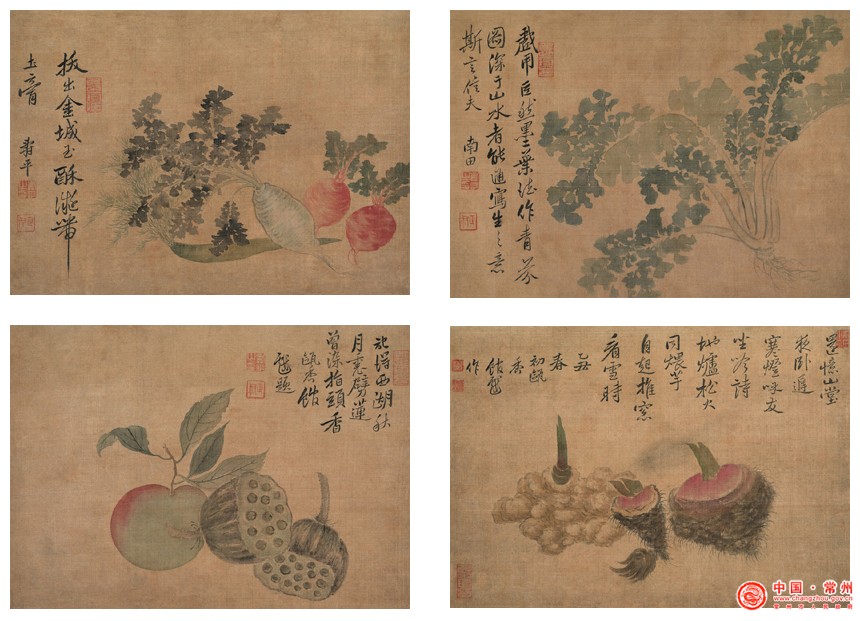 拔出金城玉酥
土膏
壽平
戲用巨然墨葉法作青菜
圖深于山水者能通寫生之意
斯言信夫
南田
記得西湖秋
月 劈蓮
曾染指頭香
甌香館
戲題
還憶山堂
夜卧遲
寒燈呼友
坐吟詩
地爐松火
同煨芋
自起推窓
看雪時
乙丑
春
初甌
香
館戲
作
中国·常州
www.changzhou.gov.cn